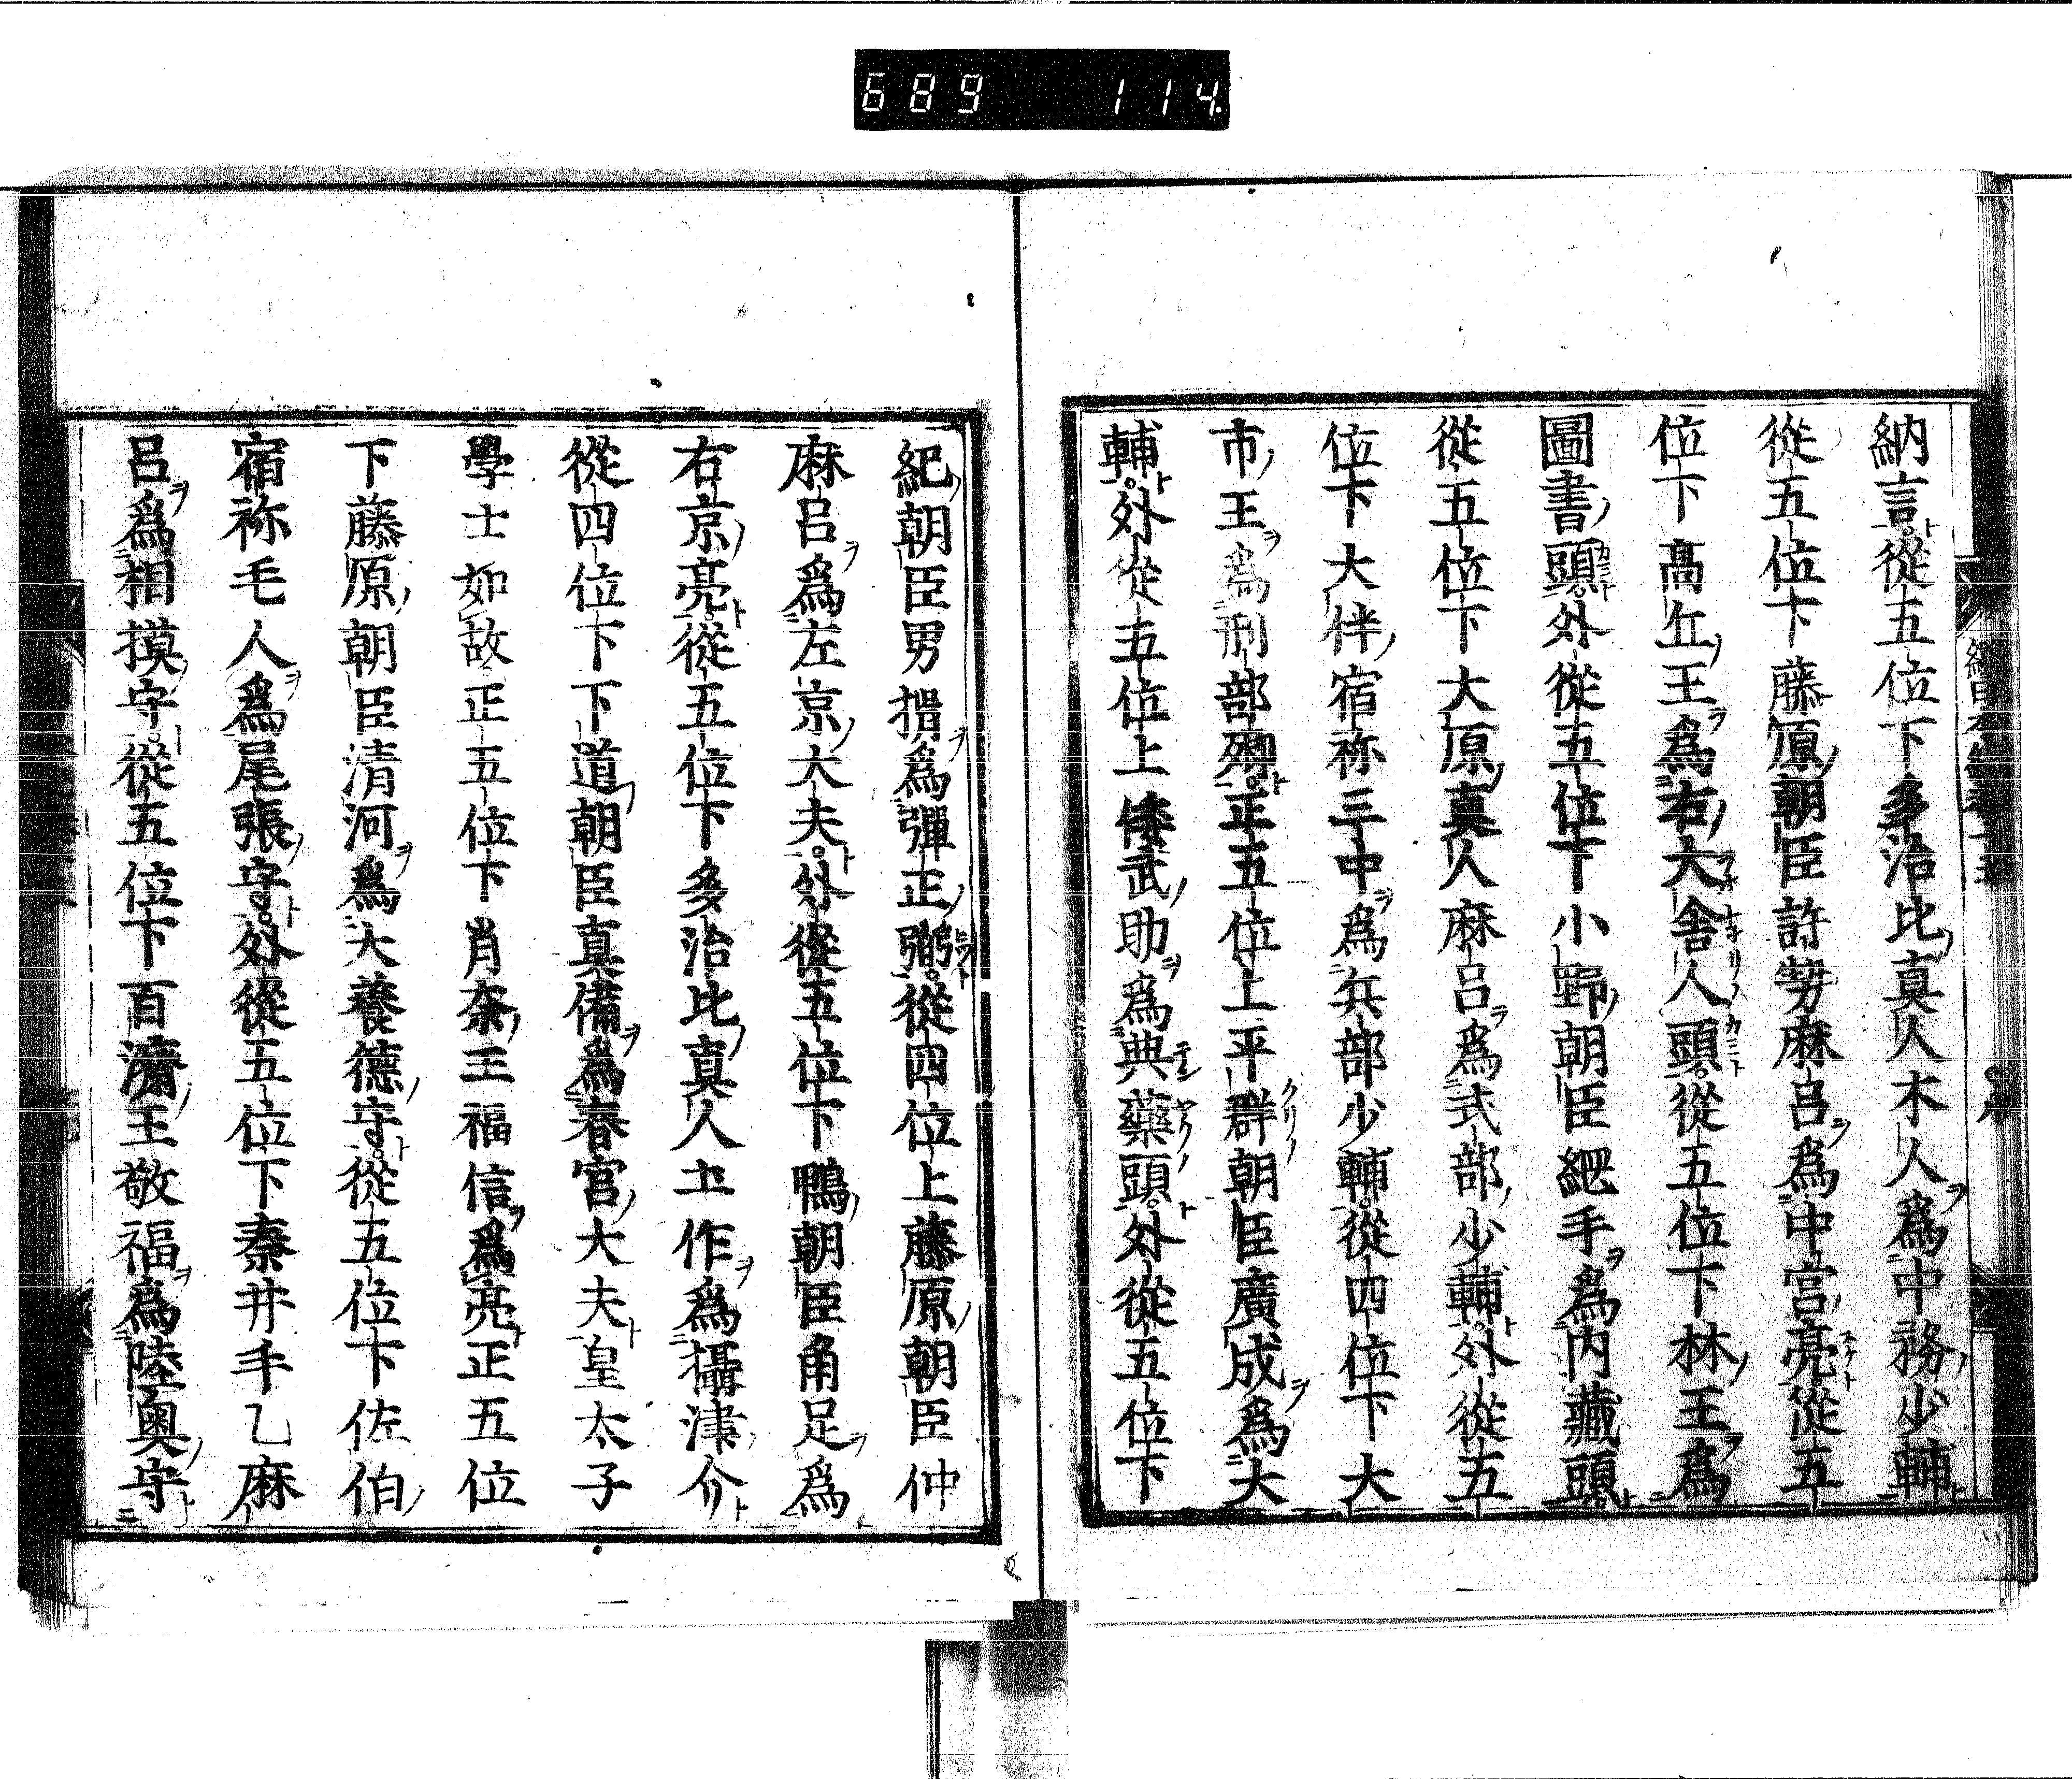 689 114
納言從五位下多治比真人木人爲中務少輔
從五位下藤原朝臣許勢麻呂爲中宮亮從五
位下高丘王爲右大舍人頭從五位下林王爲
圖書頭外從五位下小野朝臣綱手爲内藏頭
從五位下大原真人麻呂爲式部少輔外從五
位下大伴宿祢三中爲兵部少輔從四位下大
市王爲刑部卿正五位上平群朝臣廣成爲大
輔外從五位上倭武助爲典藥頭外從五位下
紀朝臣男揖爲彈正弼從四位上藤原朝臣仲
麻呂爲左京大夫外從五位下鴨朝臣角足爲
右京亮從五位下多治比真人土作爲攝津介
從四位下下道朝臣真備爲春宮大夫皇太子
學士如故正五位下背奈王福信爲亮正五位
下藤原朝臣清河爲大養德守從五位下佐伯
宿祢毛人爲尾張守外從五位下秦井手乙麻
呂爲相摸守從五位下百濟王敬福爲陸奥守